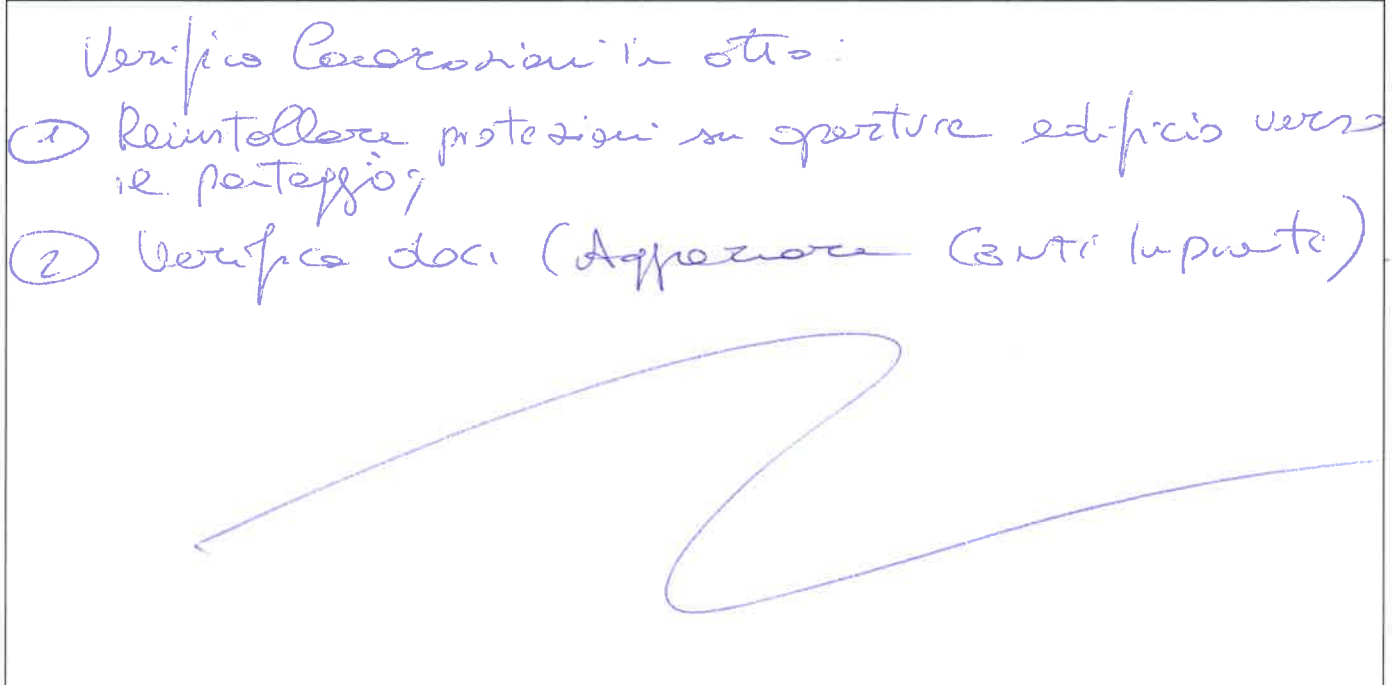 Verifica lavorazioni in atto:
① Reinstallare protezioni su aperture edificio verso
il ponteggio;
② Verifica doc. (Aggiornare